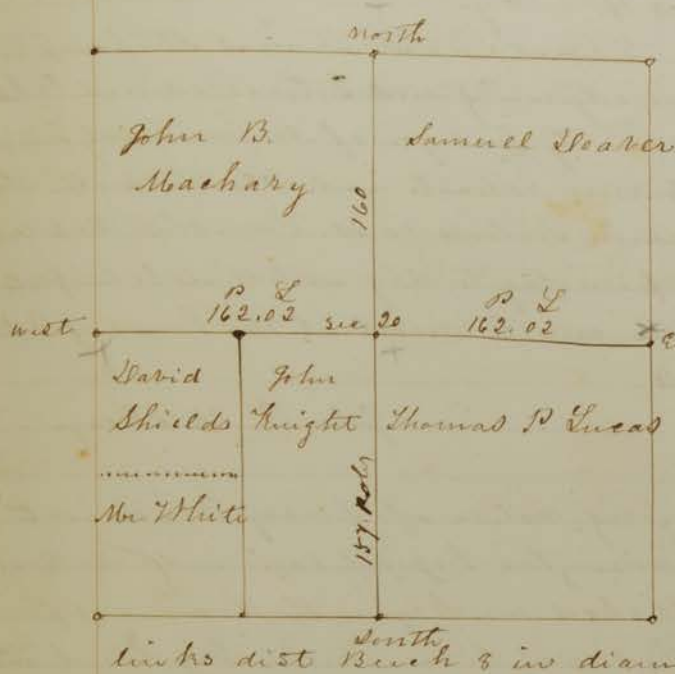 North
John B.
Machary
Samuel Deaver
160
P L
162.02
P L
162.02
west
sec 20
E
David
Shields
John
Knight
Thomas P Lucas
Mr White
157 Poles
South
links dist Beech 8 in diam